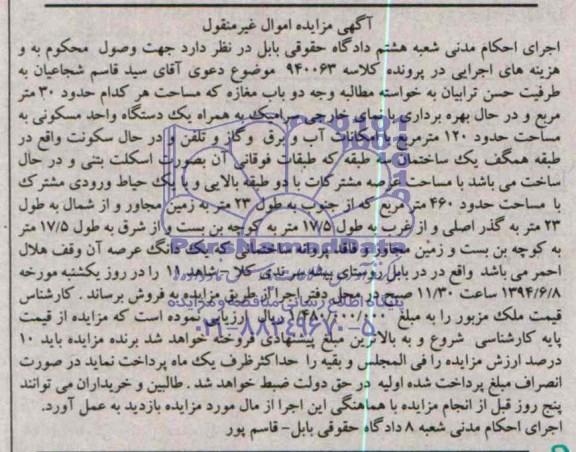 آگهی مزایده اموال غیرمنقول
اجرای احکام مدنی شعبه هشتم دادگاه حقوقی بابل در نظر دارد جهت وصول محکوم به و
هزینه های اجرایی در پرونده کلاسه ۹۴۰۰۶۳ موضوع دعوی آقای سید قاسم شجاعیان به
طرفیت حسن ترابیان به خواسته مطالبه وجه دو باب مغازه که مساحت هر کدام حدود ۳۰ متر
مربع و در حال بهره برداری با نمای خارجی سرامیک به همراه یک دستگاه واحد مسکونی به
مساحت حدود ۱۲۰ مترمربع با امکانات آب و برق و گاز و تلفن و در حال سکونت واقع در
طبقه همگف یک ساختمان سه طبقه که طبقات فوقانی آن بصورت اسکلت بتنی و در حال
ساخت می باشد با مساحت عرصه مشترکات با دو طبقه بالایی و با یک حیاط ورودی مشترک
با مساحت حدود ۴۶۰ متر مربع که از جنوب به طول ۲۳ متر به زمین مجاور و از شمال به طول
۲۳ متر به گذر اصلی و از غرب به طول ۱۷/۵ متر به کوچه بن بست و از شرق به طول ۱۷/۵ متر
به کوچه بن بست و زمین مجاور و فاقد پروانه ساختمانی که یک دانگ عرصه آن وقف هلال
احمر می باشد واقع در در بابل روستای بیشه سر ندی کلا - شاهد ۱۱ را در روز یکشنبه مورخه
۱۳۹۴/۶/۸ ساعت ۱۱/۳۰ صبح در محل دفتر اجرا از طریق مزایده به فروش برساند . کارشناس
قیمت ملک مزبور را به مبلغ ریال ارزیابی نموده است که مزایده از قیمت
پایه کارشناسی شروع و به بالاترین مبلغ پیشنهادی فروخته خواهد شد برنده مزایده باید ۱۰
درصد ارزش مزایده را فی المجلس و بقیه را حداکثرظرف یک ماه پرداخت نماید در صورت
انصراف مبلغ پرداخت شده اولیه در حق دولت ضبط خواهد شد . طالبین و خریداران می توانند
پنج روز قبل از انجام مزایده با هماهنگی این اجرا از مال مورد مزایده بازدید به عمل آورد.
اجرای احکام مدنی شعبه ۸ دادگاه حقوقی بابل- قاسم پور
ParsNamadData
۰۲۱-۸۸۳۴۹۶۷۰-۵